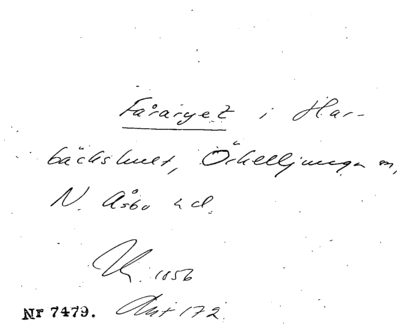 Fåraryet i Har-
bäckshult, Örkelljunga sn,
N. Åsbo hd.
1856
Nr 7479. Akt 172